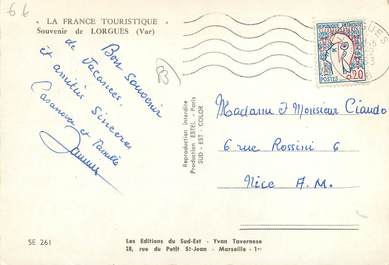 66
« LA FRANCE TOURISTIQUE »
Souvenir de LORGUES (Var)
Bon souvenir
de Vacances.
et amitiés sincères
Casanova et Famille
B
REPUBLIQUE FRANCAISE
POSTES 0,20
Reproduction Interdite
Production ESTEL - Paris
SUD - EST - COLOR
Madame et Monsieur Ciaudo
6 rue Rossini 6
Nice A. M.
SE 261
Les Editions du Sud-Est - Yvan Tavernese
28, rue du Petit St-Jean - Marseille - 1er